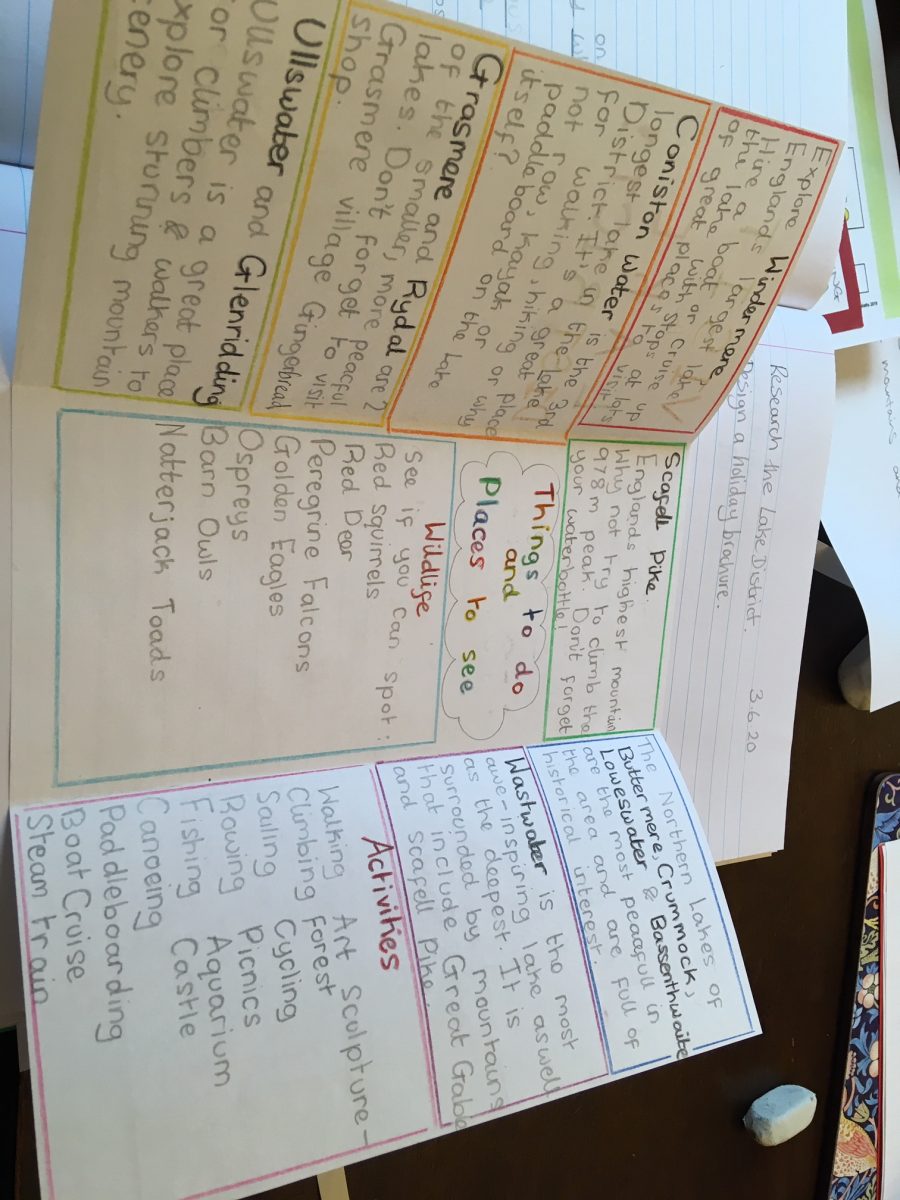 Research the Lake District. 3.6.20
Design a holiday brochure.
Explore Windermere
Englands largest lake
Hire a boat or cruise up
the lake with stops at
of great places to visit
Coniston Water is the 3rd
longest lake in the Lake
District. It's a great place
for walking, hiking or why
not row, kayak or
paddle board on the lake
itself?
Grasmere and Rydal are 2
of the smaller, more peacful
lakes. Don't forget to visit
Grasmere village Gingerbread
shop.
Ullswater and Glenridding
Ullswater is a great place
for climbers & walkers to
explore stunning mountain
scenery.
Scafell Pike.
Englands highest mountain
Why not try to climb the
978m peak. Don't forget
your waterbottle!
Things to do
and
Places to see
Wildlife
See if you can spot:
Red Squirrels
Red Deer
Peregrine Falcons
Golden Eagles
Ospreys
Barn Owls
Natterjack Toads
The Northern Lakes of
Buttermere, Crummock,
Loweswater & Bassenthwaite
are the most peacefull in
the area and are full of
historical interest.
Wastwater is the most
awe-inspiring lake aswell
as the deepest. It is
surrounded by mountains
that include Great Gable
and Scafell Pike.
Activities
Walking Art Sculpture-
Climbing Forest
Sailing Cycling
Rowing Picnics
Fishing Aquarium
Canoeing Castle
Paddleboarding
Boat Cruise
Steam train
mountains
on